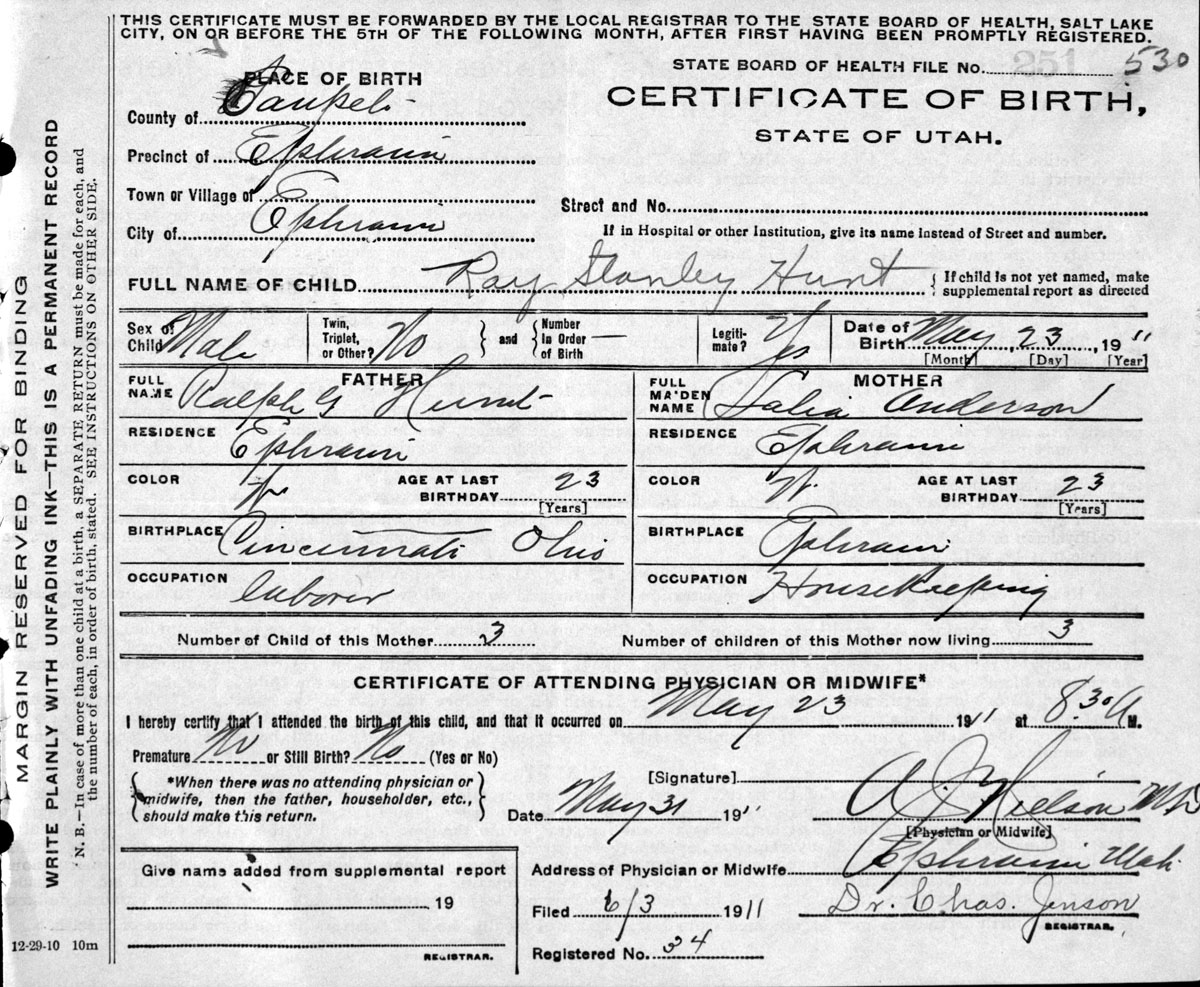 THIS CERTIFICATE MUST BE FORWARDED BY THE LOCAL REGISTRAR TO THE STATE BOARD OF HEALTH, SALT LAKE
CITY, ON OR BEFORE THE 5TH OF THE FOLLOWING MONTH, AFTER FIRST HAVING BEEN PROMPTLY REGISTERED.
STATE BOARD OF HEALTH FILE No. 530
CERTIFICATE OF BIRTH,
STATE OF UTAH.
PLACE OF BIRTH
County of
Precinct of Ephraim
Town or Village of
City of Ephraim
Street and No.
If in Hospital or other Institution, give its name instead of Street and number.
FULL NAME OF CHILD Ray Stanley Hunt { If child is not yet named, make
supplemental report as directed
Sex of Child Male
Twin, Triplet, or Other? No } and { Number In Order of Birth —
Legiti- mate? Yes
Date of Birth May 23, 1911
[Month] [Day] [Year]
FATHER
FULL NAME Ralph G Hunt
RESIDENCE Ephraim
COLOR W AGE AT LAST BIRTHDAY 23
[Years]
BIRTHPLACE Cincinnati Ohio
OCCUPATION laborer
MOTHER
FULL MAIDEN NAME Anderson
RESIDENCE Ephraim
COLOR W. AGE AT LAST BIRTHDAY 23
[Years]
BIRTHPLACE Ephraim
OCCUPATION HouseKeeping
Number of Child of this Mother 3 Number of children of this Mother now living 3
CERTIFICATE OF ATTENDING PHYSICIAN OR MIDWIFE*
I hereby certify that I attended the birth of this child, and that it occurred on May 23 1911 at 8.30 A M.
Premature No or Still Birth? No (Yes or No)
{ *When there was no attending physician or
midwife, then the father, householder, etc.,
should make this return. }
[Signature] A. J. Nielson MD
[Physician or Midwife]
Date May 31 1911
Address of Physician or Midwife Ephraim Utah
Give name added from supplemental report
19
REGISTRAR.
Filed 6/3 1911 Dr. Chas. Jenson
REGISTRAR.
Registered No. 34
12-29-10 10m
MARGIN RESERVED FOR BINDING
WRITE PLAINLY WITH UNFADING INK—THIS IS A PERMANENT RECORD
N. B.—In case of more than one child at a birth, a SEPARATE RETURN must be made for each, and
the number of each, in order of birth, stated. SEE INSTRUCTIONS ON OTHER SIDE.